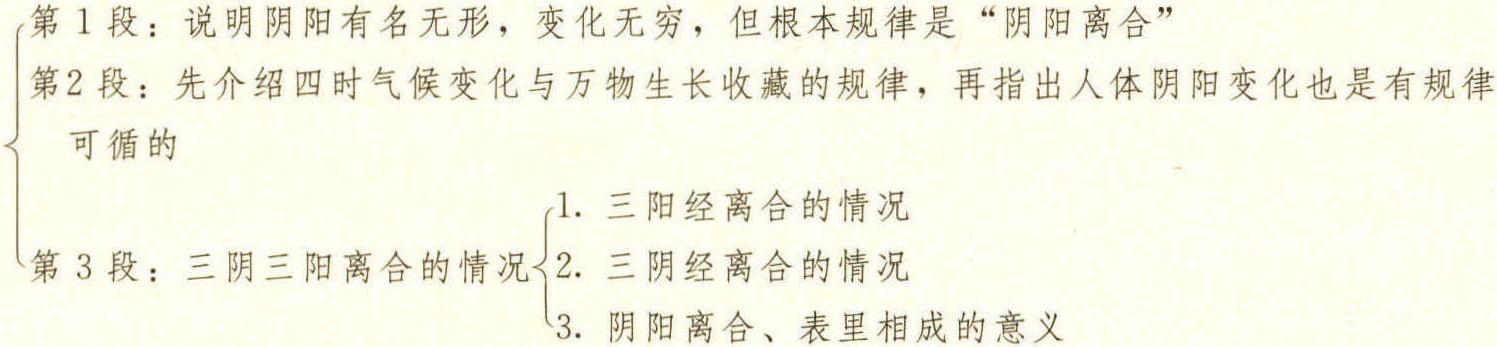 第1段：说明阴阳有名无形，变化无穷，但根本规律是“阴阳离合”
第2段：先介绍四时气候变化与万物生长收藏的规律，再指出人体阴阳变化也是有规律
可循的
第3段：三阴三阳离合的情况
1. 三阳经离合的情况
2. 三阴经离合的情况
3. 阴阳离合、表里相成的意义